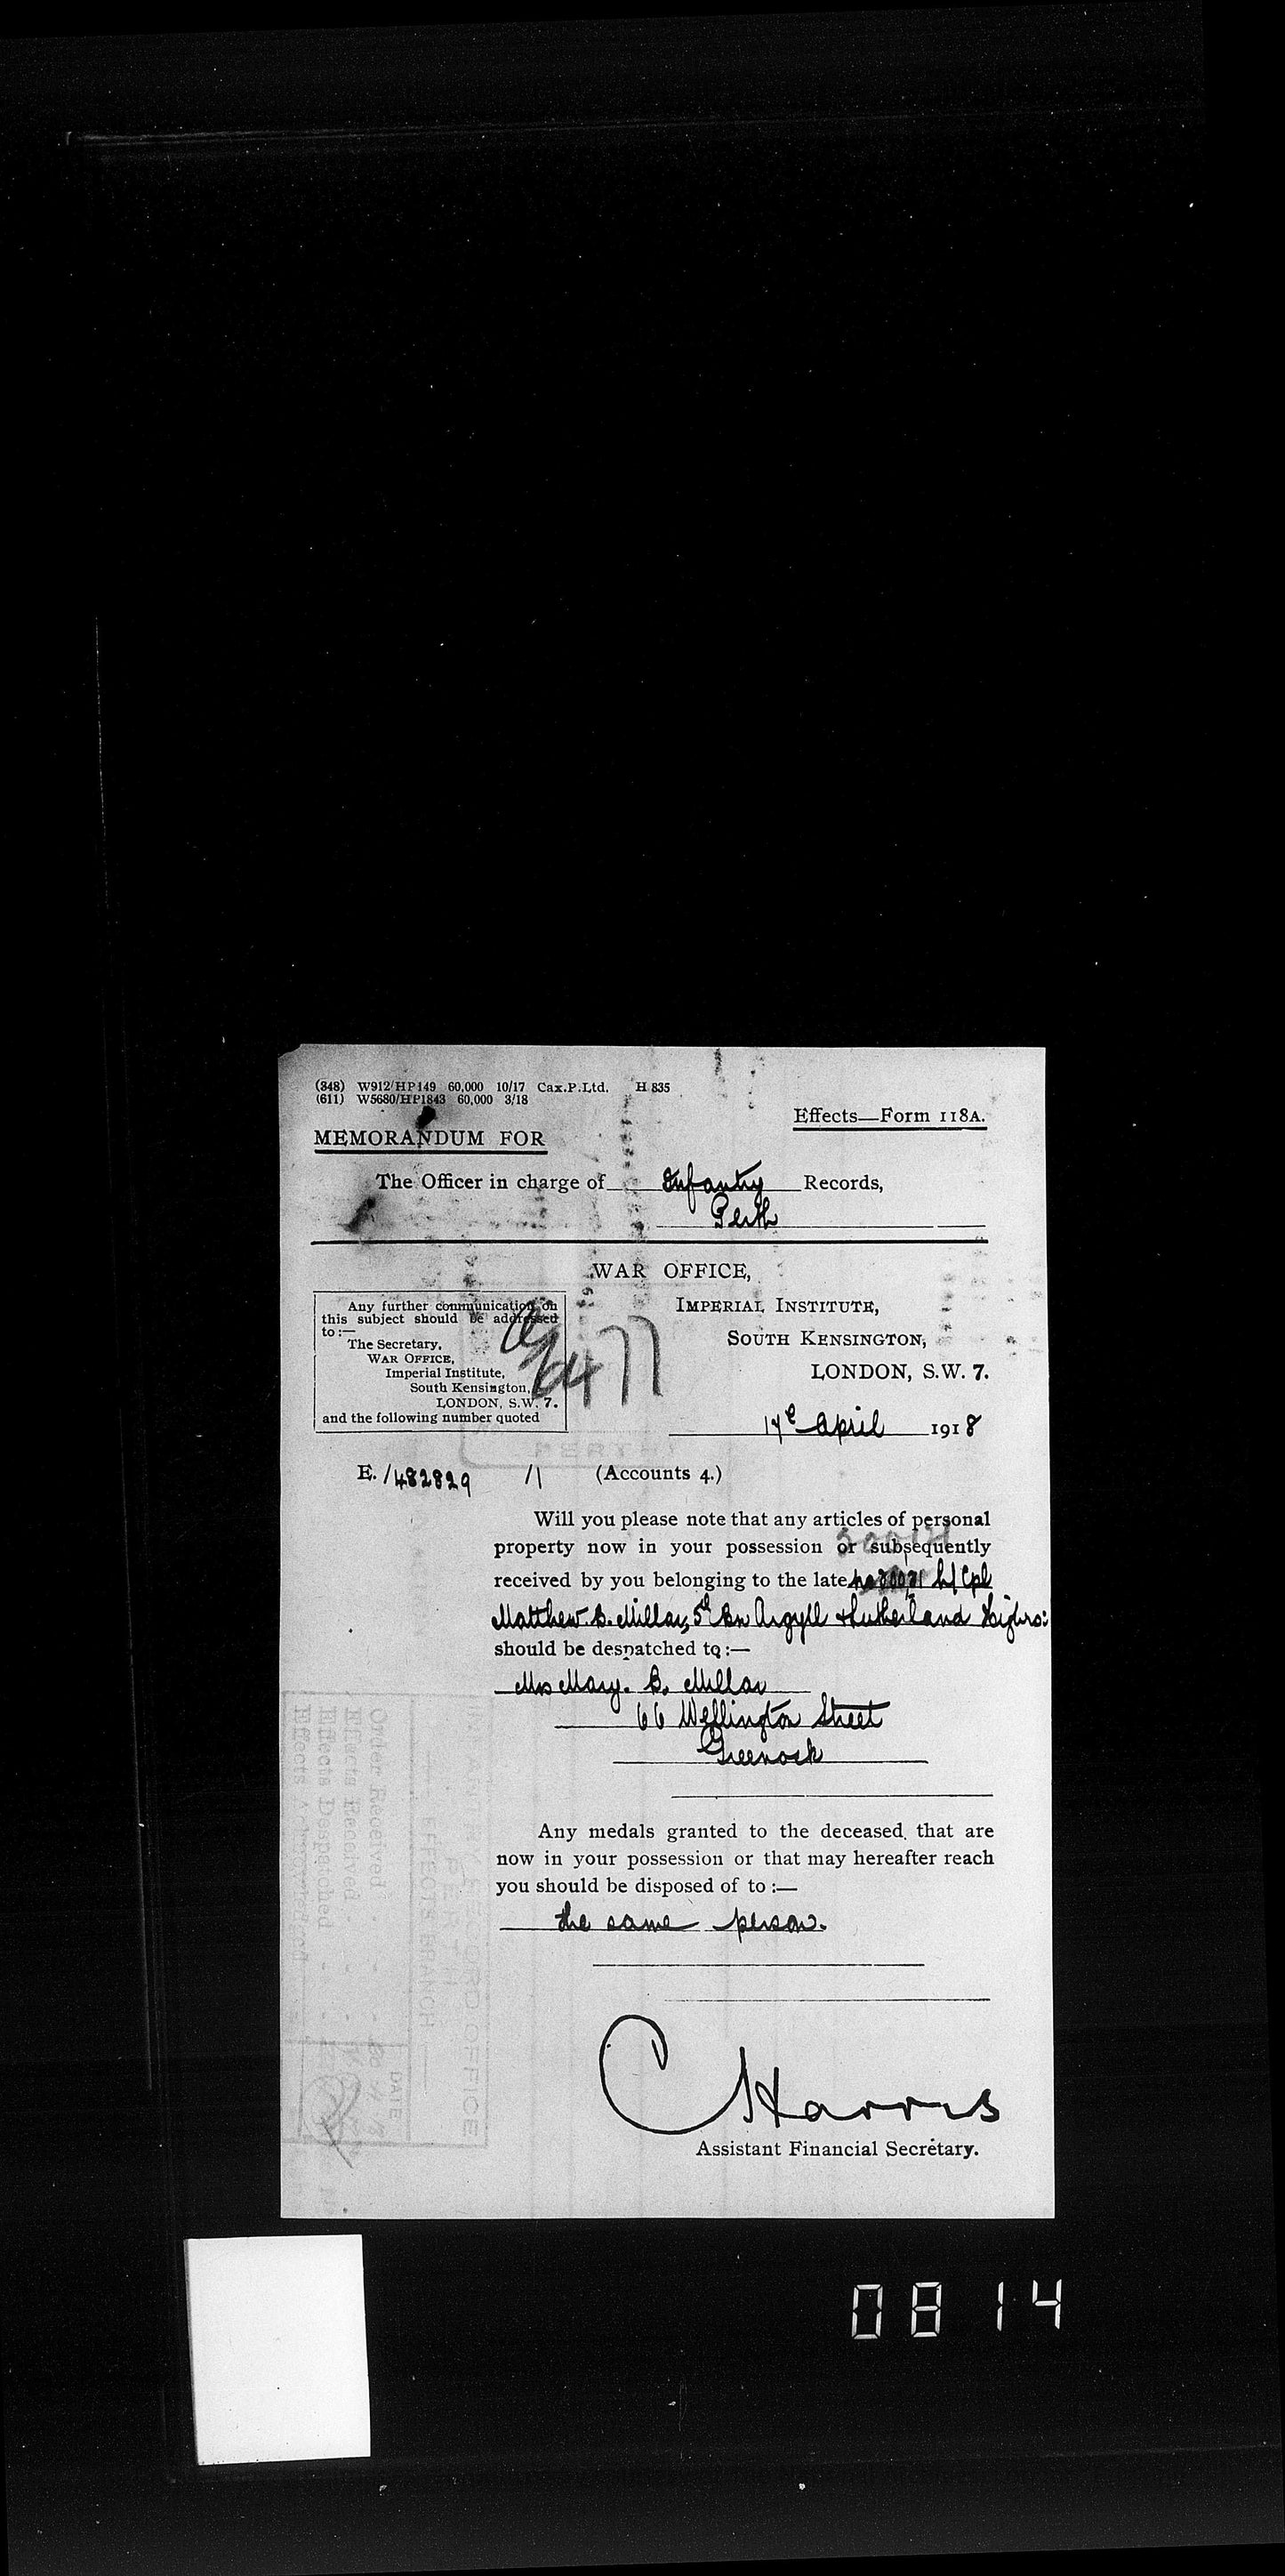 (348) W912/HP149 60,000 10/17 Cax.P.Ltd. H 835
(611) W5680/HP1843 60,000 3/18
Effects—Form 118A.
MEMORANDUM FOR
The Officer in charge of Infantry Records,
Perth
WAR OFFICE,
IMPERIAL INSTITUTE,
SOUTH KENSINGTON,
LONDON, S.W. 7.
Any further communication on
this subject should be addressed
to :—
The Secretary,
WAR OFFICE,
Imperial Institute,
South Kensington,
LONDON, S.W. 7.
and the following number quoted
6477
April 1918
PERTH
E. /482829 /1 (Accounts 4.)
Will you please note that any articles of personal
property now in your possession or subsequently
received by you belonging to the late L/Cpl
Matthew B. Millar, 5th Bn Argyll & Sutherland Highrs:
should be despatched to :—
Mrs Mary. B. Millar
66 Wellington Street
Greenock
Any medals granted to the deceased that are
now in your possession or that may hereafter reach
you should be disposed of to :—
the same person.
C Harris
Assistant Financial Secretary.
RECORD OFFICE
PERTH
EFFECTS BRANCH
DATE
Order Received
Effects Received
Effects Despatched
0814